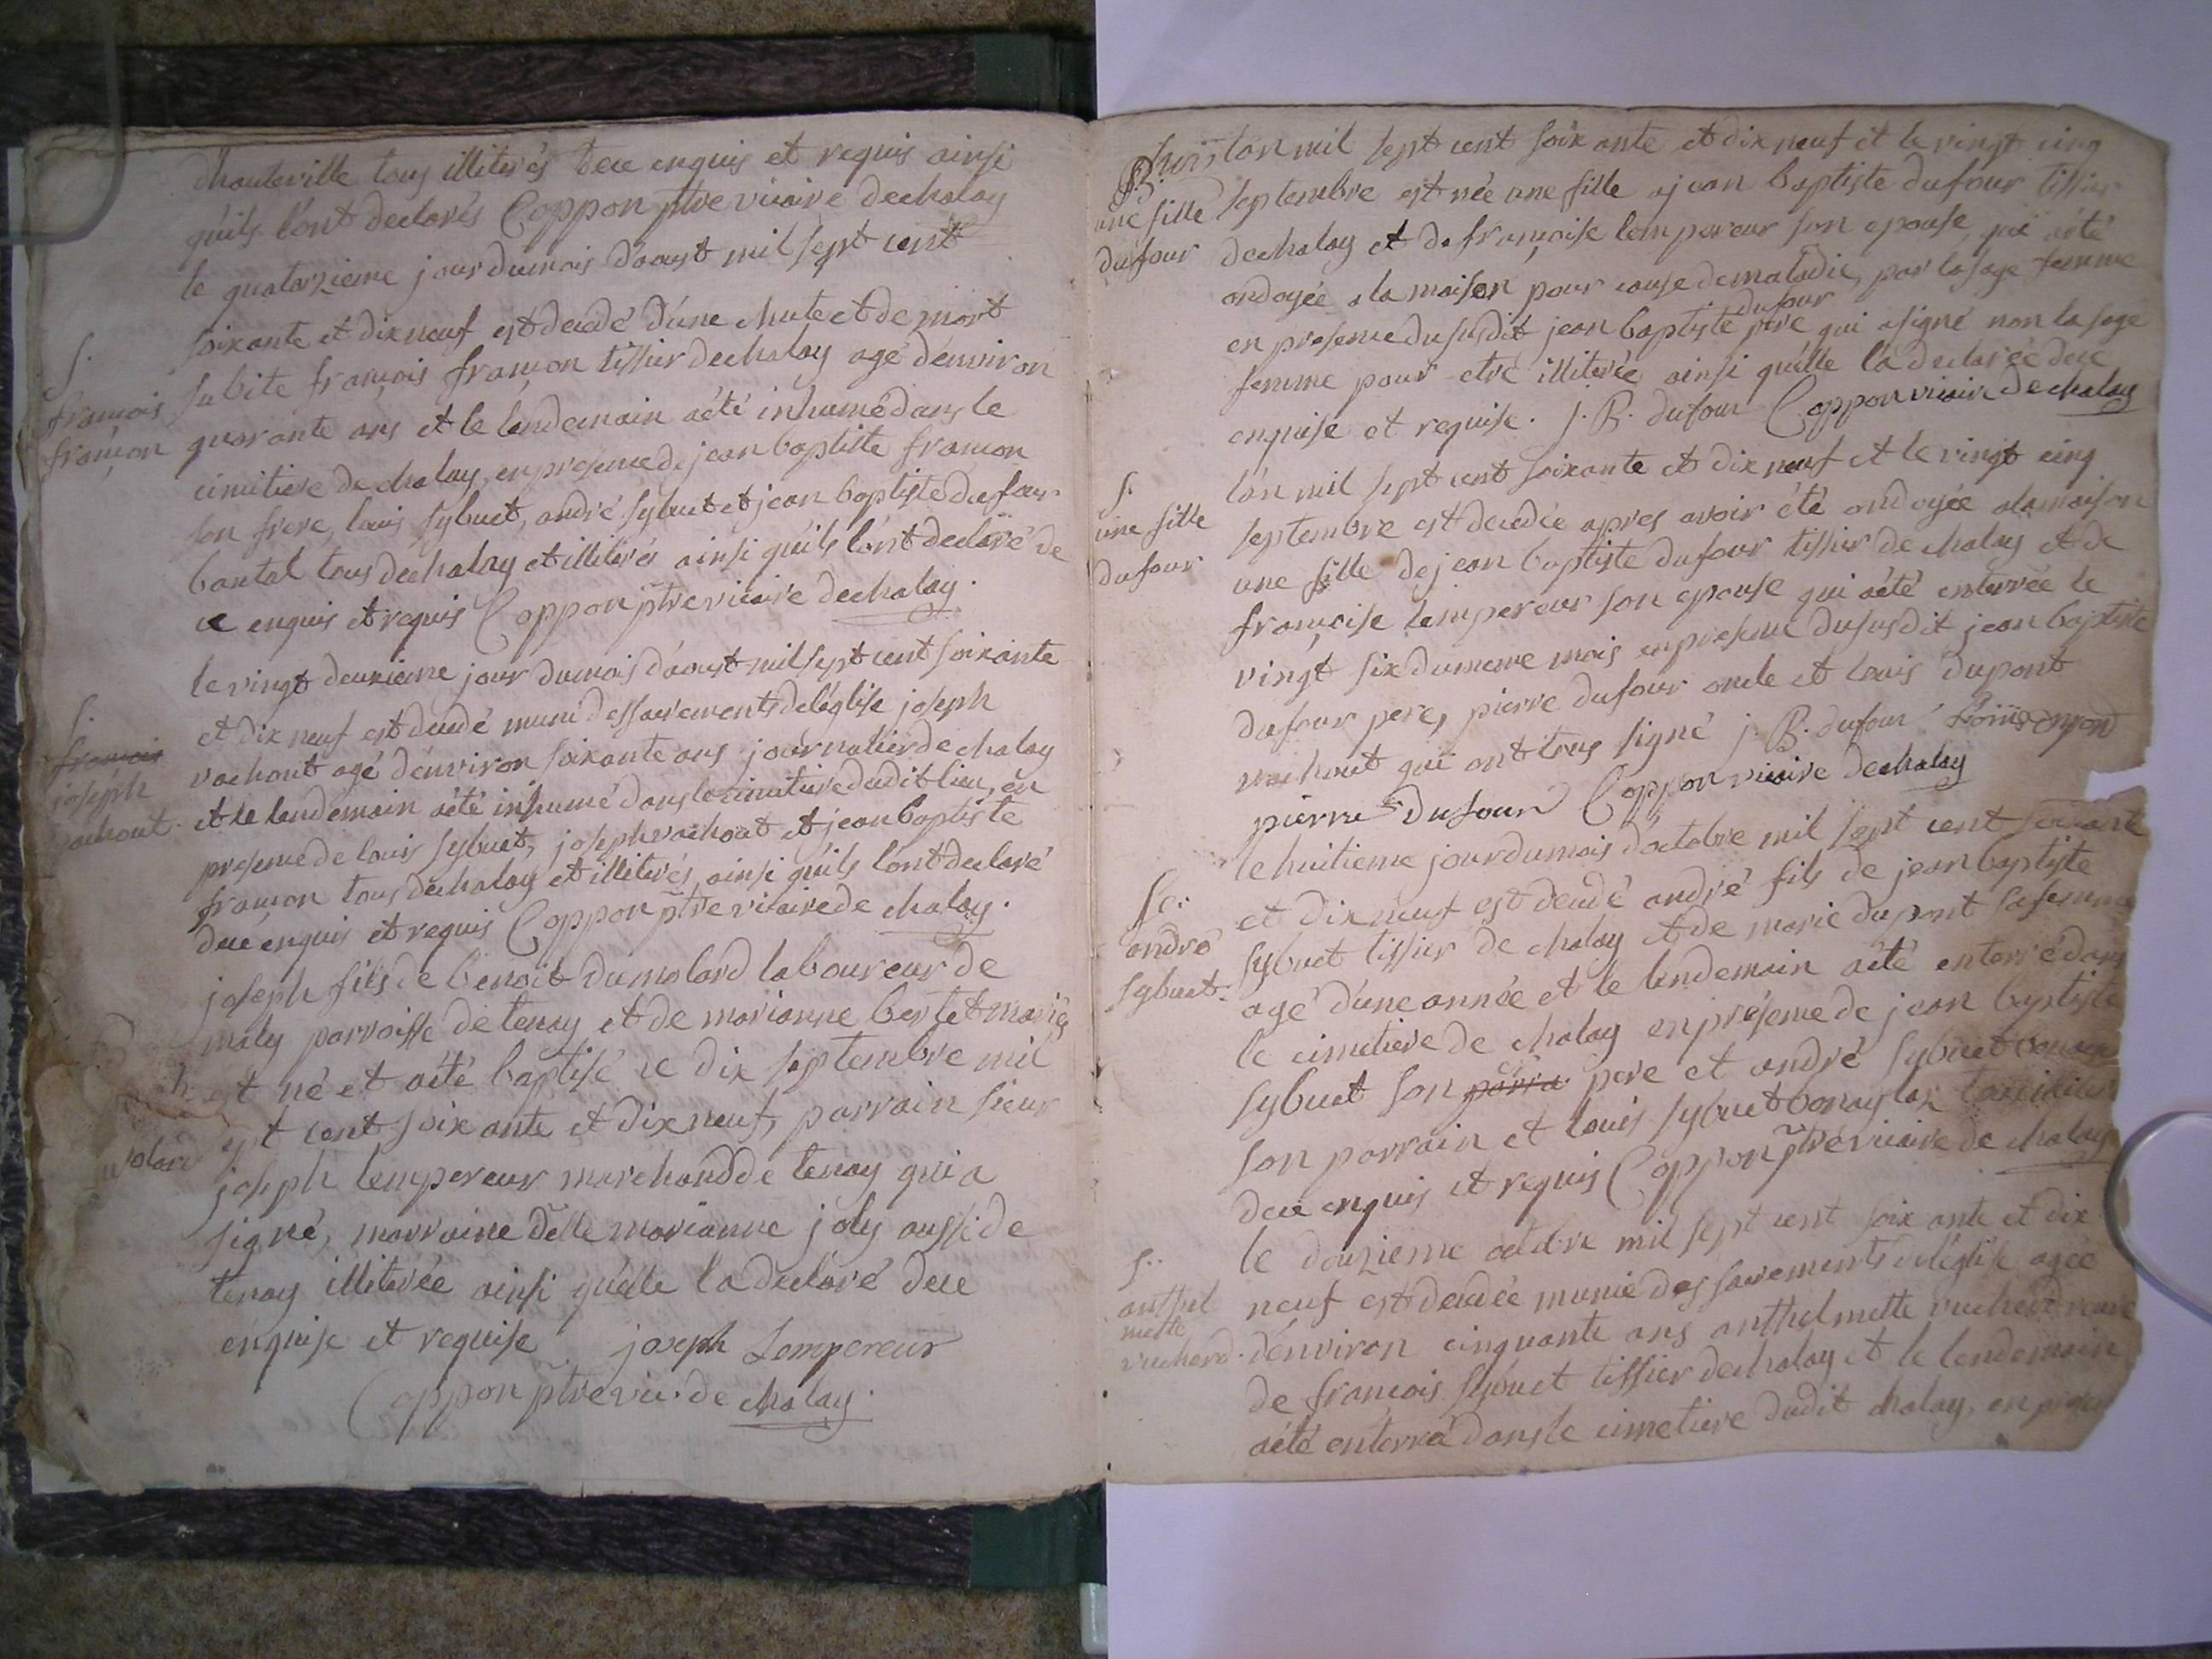 d'hauteville tous illiterés de ce enquis et requis ainsi
qu'ils l'ont declarés Coppon ptre vicaire de chaley
le quatorzieme jour du mois d'aoust mil sept cent
soixante et dix neuf est decedé d'une chute et de mort
S.
françois
françon
subite françois françon tissier de chaley agé d'environ
quarante ans et le lendemain a été inhumé dans le
cimitiere de chaley, en presence de jean baptiste françon
son frere, louis sybuet, andré sybuet et jean baptiste dufour
bantal tous de chaley et illiterés ainsi qu'ils l'ont declaré de
ce enquis et requis Coppon ptre vicaire de chaley.
le vingt deuxieme jour du mois d'aoust mil sept cent soixante
S.
françois
joseph
vachout.
et dix neuf est decedé muni des sacrements de l'église joseph
vachout agé d'environ soixante ans journalier de chaley
et le lendemain a été inhumé dans le cimitiere dudit lieu, en
presence de louis sybuet, joseph vachout et jean baptiste
françon tous de chaley et illiterés, ainsi qu'ils l'ont declaré
de ce enquis et requis Coppon ptre vicaire de chaley.
joseph fils de benoit dumolard laboureur de
maly parroisse de tenay et de marianne berlet mariés
est né et a été baptisé ce dix septembre mil
h
molard
sept cent soixante et dix neuf, parrain sieur
joseph lempereur marchand de tenay qui a
signé, marraine delle marianne joly aussi de
tenay illiterée ainsi qu'elle l'a declaré de ce
enquise et requise joseph Lempereur
Coppon ptre vic. de chaley.
B.
une fille
dufour
l'an mil sept cent soixante et dix neuf et le vingt cinq
septembre est née une fille a jean baptiste dufour tissier
de chaley et de françoise lempereur son epouse, qui a été
ondoyée a la maison pour cause de maladie, par la sage femme
dufour
en presence du susdit jean baptiste pere qui a signé non la sage
femme pour etre illiterée ainsi qu'elle l'a declarée de ce
enquise et requise. J. B. dufour Coppon vicaire de chaley
S.
une fille
dufour
l'an mil sept cent soixante et dix neuf et le vingt cinq
septembre est decedée apres avoir été ondoyée a la maison
une fille de jean baptiste dufour tissier de chaley et de
françoise lempereur son epouse qui a été enterrée le
vingt six du meme mois en presence du susdit jean baptiste
dufour pere, pierre dufour oncle et louis dupont
vachout qui ont tous signé J. B. dufour
pierre dufour Coppon vicaire de chaley
le huitieme jour du mois d'octobre mil sept cent soixante
Se.
andré
sybuet.
et dix neuf est decedé andré fils de jean baptiste
sybuet tissier de chaley et de marie dupont sa femme
agé d'une année et le lendemain a été enterré dans
le cimetiere de chaley en présence de jean baptiste
sybuet son parra pere et andré sybuet
son parrain et louis sybuet
de ce enquis et requis Coppon ptre vicaire de chaley
S.
anthel
mette
vuchard.
le douzieme octobre mil sept cent soixante et dix
neuf est decedée munie des sacrements de l'église agée
d'environ cinquante ans anthelmette vuchard veuve
de françois sybuet tissier de chaley et le lendemain
a été enterré dans le cimetiere dudit chaley, en